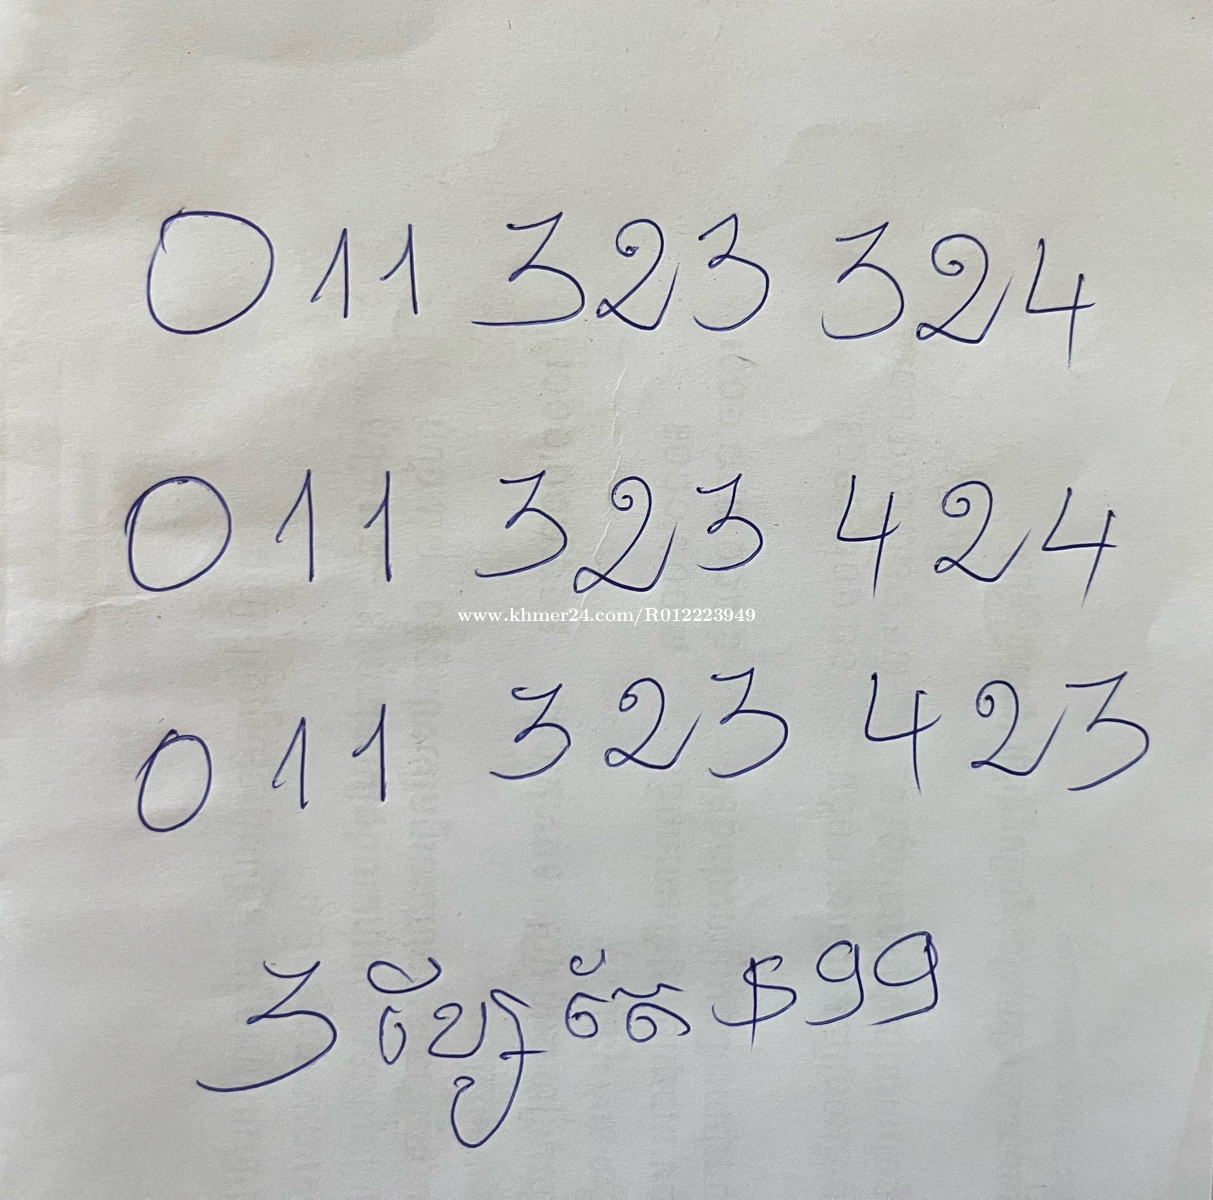 011 323 324
011 323 424
www.khmer24.com/R012223949
011 323 423
3 ខ្សែ តែ $99